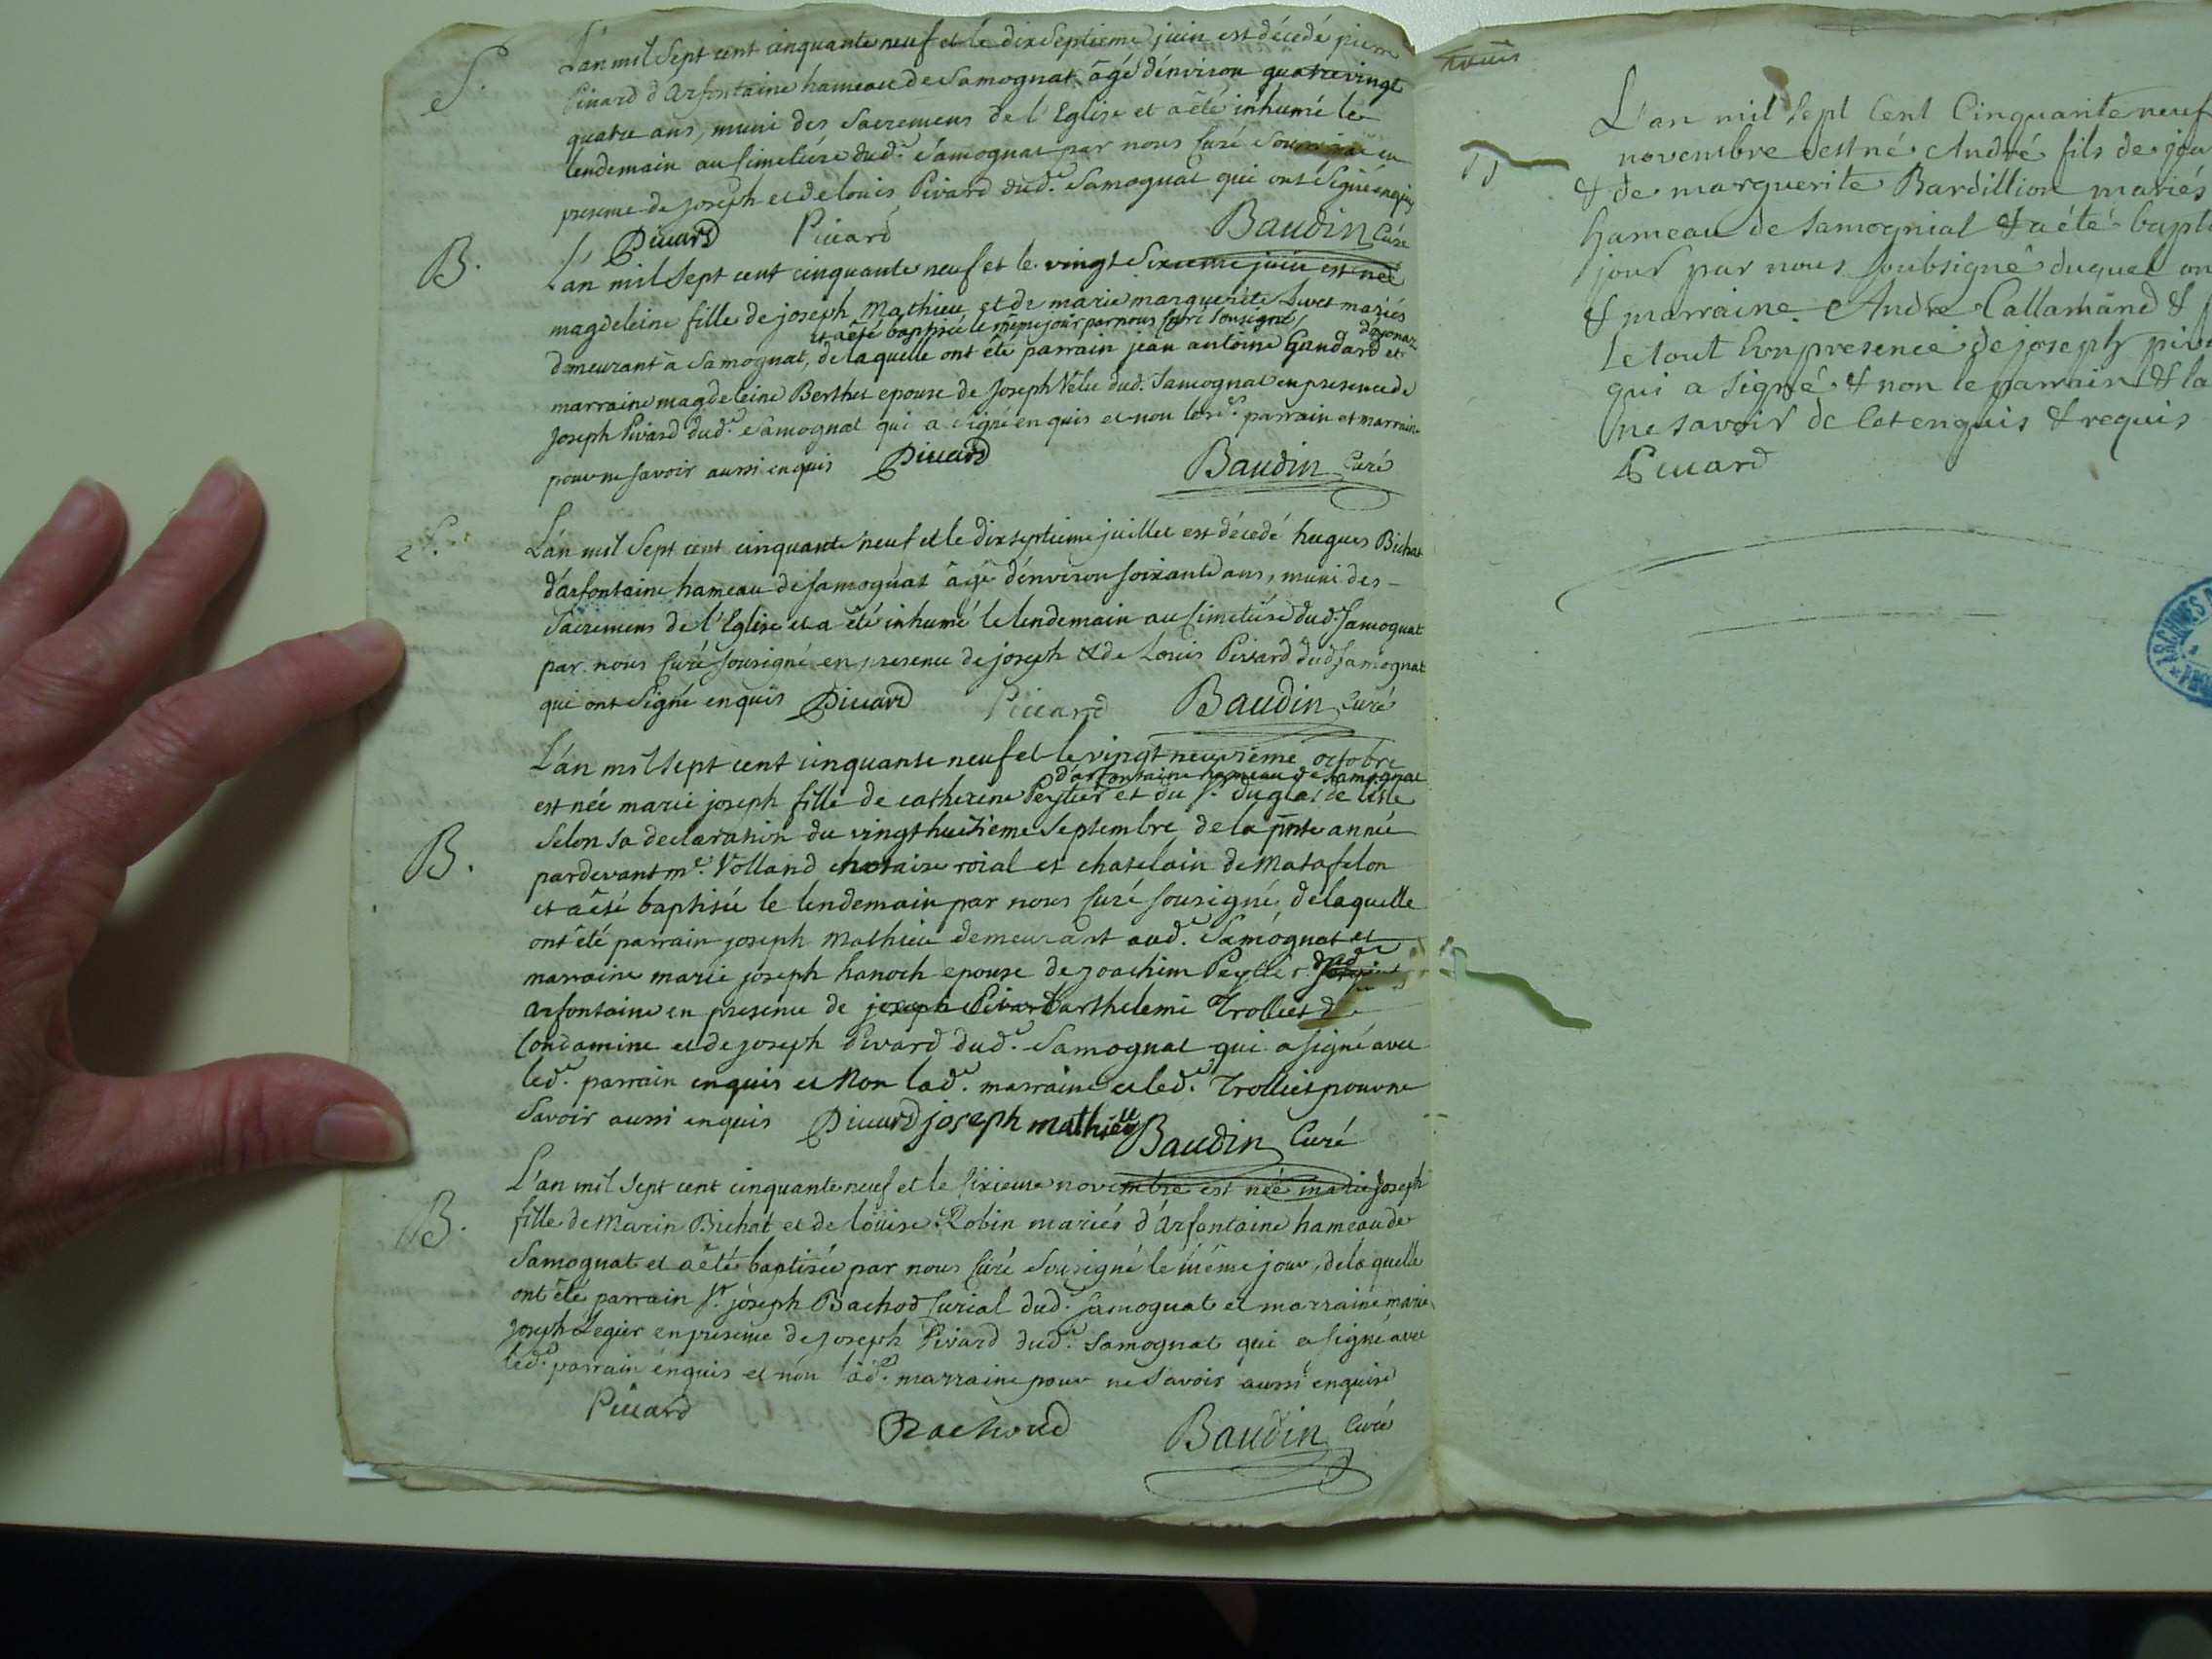 S.
L'an mil sept cent cinquante neuf et le dix septieme juin est décedé pierre
Pivard d'arfontaine hameau de Samognat, âgé d'environ quatrevingt
quatre ans, muni des Sacremens de l'Eglise et a été inhumé le
lendemain au Cimetiére dud.e Samognat par nous Curé en
presence de joseph et de louis Pivard dud.e Samognat qui ont signé enquis
Pivard Pivard Baudin Curé
B.
L'an mil sept cent cinquante neuf et le vingt sixieme juin est née
magdeleine fille de joseph Mathieu et de marie marguerite mariés
et a été baptisée le même jour par nous Curé sousigné
demeurant à Samognat, de laquelle ont été parrain jean antoine Gandard et
marraine magdeleine Berthet epouse de Joseph dud. Samognat en presence de
Joseph Pivard dud.e Samognat qui a signé enquis et non lesd.s parrain et marraine
pour ne savoir aussi enquis Pivard Baudin Curé
S.
L'an mil sept cent cinquante neuf et le dix septieme juillet est décedé hugues Bichat
d'arfontaine hameau de Samognat âgé d'environ soixante ans, muni des
Sacremens de l'Eglise et a été inhumé le lendemain au Cimetiére dud. Samognat
par nous Curé sousigné en presence de joseph & de Louis Pivard dud Samognat
qui ont signé enquis Pivard Pivard Baudin Curé
L'an mil sept cent cinquante neuf et le vingt neuvieme octobre
d'arfontaine hameau de Samognat
est née marie joseph fille de catherine Peytier et du Sr. de lisle
Selon sa declaration du vingthuitieme Septembre de la pnte année
B.
pardevant me. Volland notaire roial et chatelain de Matafelon
et a été baptisée le lendemain par nous Curé sousigné, de laquelle
ont été parrain joseph Mathieu demeurant aud.e Samognat et
marraine marie joseph hanoch epouse de joachim dud.e
arfontaine en presence de joseph Pivard Barthelemi Trolliet de
Condamine et de joseph Pivard dud.e Samognat qui a signé avec
led.e parrain enquis et Non lad.e marraine et led.e Trolliet pour ne
Savoir aussi enquis Pivard joseph mathieu Baudin Curé
L'an mil sept cent cinquante neuf et le sixieme novembre est née marie Joseph
B.
fille de Marin Bichat et de loüise Robin mariés d'arfontaine hameau de
Samognat et a été baptisée par nous Curé Sousigné le même jour, de laquelle
ont été parrain Sr. joseph Bachod Curial dud.e Samognat et marraine marie
Joseph Legier en presence de joseph Pivard dud.e Samognat qui a signé avec
led.e parrain enquis et non lad.e marraine pour ne savoir aussi enquise
Pivard Bachoud Baudin Curé
L'an mil Sept Cent Cinquante neuf
novembre est né André fils de
& de marguerite Bardillion mariés
hameau de Samognial & a été
jour par nous soubsigné duquel on
& marraine Andre Callamand &
Le tout En presence de joseph
qui a signé & non le parrain & la
ne savoir de Cet enquis & requis
Pivard
ARCHIVES